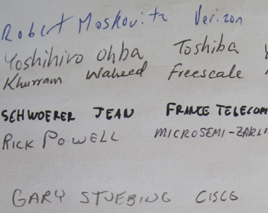 Robert Moskovitz Verizon
Yoshihiro Ohba Toshiba
Khurram Waheed Freescale
SCHWOERER JEAN FRANCE TELECOM
RICK POWELL MICROSEMI-ZARLI
GARY STUEBING CISCO